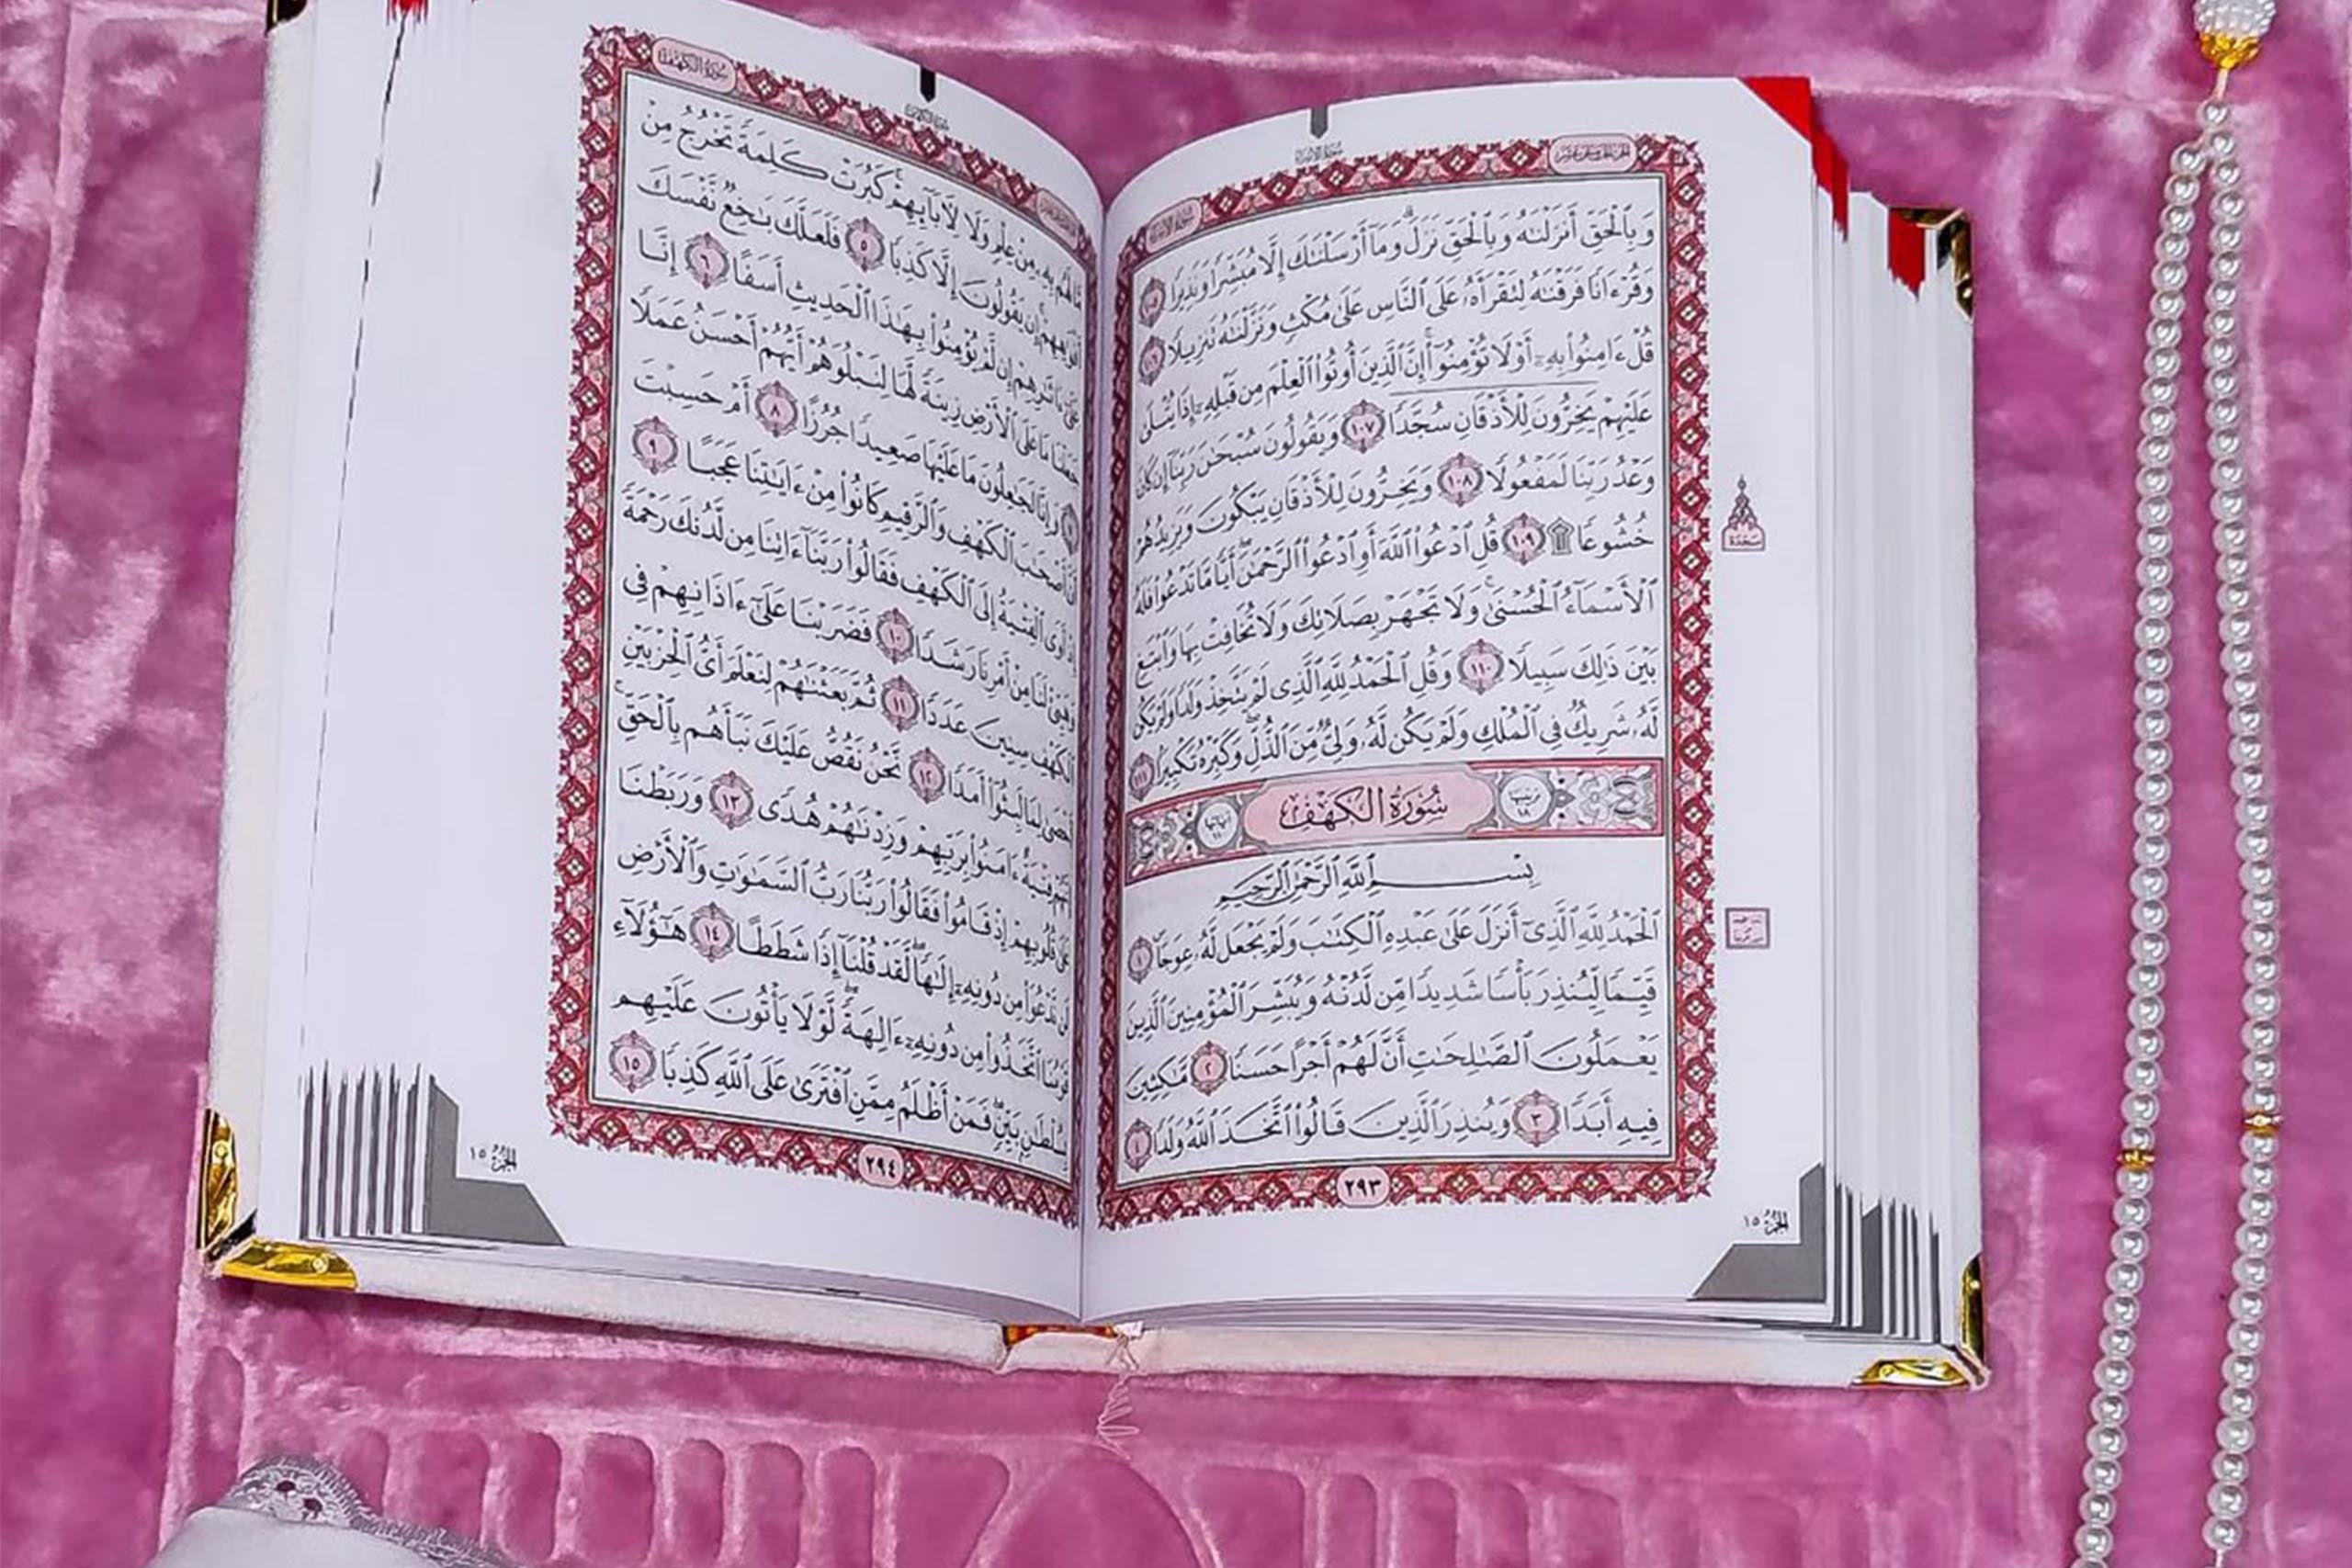 سُورَةُ الإِسْرَاء
وَبِٱلْحَقِّ أَنزَلْنَٰهُ وَبِٱلْحَقِّ نَزَلَ ۗ وَمَآ أَرْسَلْنَٰكَ إِلَّا مُبَشِّرًا وَنَذِيرًا ١٠٥
وَقُرْءَانًا فَرَقْنَٰهُ لِتَقْرَأَهُۥ عَلَى ٱلنَّاسِ عَلَىٰ مُكْثٍ وَنَزَّلْنَٰهُ تَنزِيلًا ١٠٦
قُلْ ءَامِنُوا۟ بِهِۦٓ أَوْ لَا تُؤْمِنُوٓا۟ ۚ إِنَّ ٱلَّذِينَ أُوتُوا۟ ٱلْعِلْمَ مِن قَبْلِهِۦٓ إِذَا يُتْلَىٰ
عَلَيْهِمْ يَخِرُّونَ لِلْأَذْقَانِ سُجَّدًا ١٠٧ وَيَقُولُونَ سُبْحَٰنَ رَبِّنَآ إِن كَانَ
وَعْدُ رَبِّنَا لَمَفْعُولًا ١٠٨ وَيَخِرُّونَ لِلْأَذْقَانِ يَبْكُونَ وَيَزِيدُهُمْ
خُشُوعًا ۩ ١٠٩ قُلِ ٱدْعُوا۟ ٱللَّهَ أَوِ ٱدْعُوا۟ ٱلرَّحْمَٰنَ ۖ أَيًّا مَّا تَدْعُوا۟ فَلَهُ
ٱلْأَسْمَآءُ ٱلْحُسْنَىٰ ۚ وَلَا تَجْهَرْ بِصَلَاتِكَ وَلَا تُخَافِتْ بِهَا وَٱبْتَغِ
بَيْنَ ذَٰلِكَ سَبِيلًا ١١٠ وَقُلِ ٱلْحَمْدُ لِلَّهِ ٱلَّذِى لَمْ يَتَّخِذْ وَلَدًا وَلَمْ يَكُن
لَّهُۥ شَرِيكٌ فِى ٱلْمُلْكِ وَلَمْ يَكُن لَّهُۥ وَلِىٌّ مِّنَ ٱلذُّلِّ ۖ وَكَبِّرْهُ تَكْبِيرًۢا ١١١
سُورَةُ الكَهْفِ
بِسْمِ ٱللَّهِ ٱلرَّحْمَٰنِ ٱلرَّحِيمِ
ٱلْحَمْدُ لِلَّهِ ٱلَّذِىٓ أَنزَلَ عَلَىٰ عَبْدِهِ ٱلْكِتَٰبَ وَلَمْ يَجْعَل لَّهُۥ عِوَجَا ۜ ١
قَيِّمًا لِّيُنذِرَ بَأْسًا شَدِيدًا مِّن لَّدُنْهُ وَيُبَشِّرَ ٱلْمُؤْمِنِينَ ٱلَّذِينَ
يَعْمَلُونَ ٱلصَّٰلِحَٰتِ أَنَّ لَهُمْ أَجْرًا حَسَنًا ٢ مَّٰكِثِينَ
فِيهِ أَبَدًا ٣ وَيُنذِرَ ٱلَّذِينَ قَالُوا۟ ٱتَّخَذَ ٱللَّهُ وَلَدًا ٤
٢٩٣
الجُزْءُ ١٥
سَجْدَة
سُورَةُ الكَهْفِ
مَّا لَهُم بِهِۦ مِنْ عِلْمٍ وَلَا لِـَٔابَآئِهِمْ ۚ كَبُرَتْ كَلِمَةً تَخْرُجُ مِنْ
أَفْوَٰهِهِمْ ۚ إِن يَقُولُونَ إِلَّا كَذِبًا ٥ فَلَعَلَّكَ بَٰخِعٌ نَّفْسَكَ
عَلَىٰٓ ءَاثَٰرِهِمْ إِن لَّمْ يُؤْمِنُوا۟ بِهَٰذَا ٱلْحَدِيثِ أَسَفًا ٦ إِنَّا
جَعَلْنَا مَا عَلَى ٱلْأَرْضِ زِينَةً لَّهَا لِنَبْلُوَهُمْ أَيُّهُمْ أَحْسَنُ عَمَلًا
٧ وَإِنَّا لَجَٰعِلُونَ مَا عَلَيْهَا صَعِيدًا جُرُزًا ٨ أَمْ حَسِبْتَ
أَنَّ أَصْحَٰبَ ٱلْكَهْفِ وَٱلرَّقِيمِ كَانُوا۟ مِنْ ءَايَٰتِنَا عَجَبًا ٩
إِذْ أَوَى ٱلْفِتْيَةُ إِلَى ٱلْكَهْفِ فَقَالُوا۟ رَبَّنَآ ءَاتِنَا مِن لَّدُنكَ رَحْمَةً
وَهَيِّئْ لَنَا مِنْ أَمْرِنَا رَشَدًا ١٠ فَضَرَبْنَا عَلَىٰٓ ءَاذَانِهِمْ فِى
ٱلْكَهْفِ سِنِينَ عَدَدًا ١١ ثُمَّ بَعَثْنَٰهُمْ لِنَعْلَمَ أَىُّ ٱلْحِزْبَيْنِ
أَحْصَىٰ لِمَا لَبِثُوٓا۟ أَمَدًا ١٢ نَّحْنُ نَقُصُّ عَلَيْكَ نَبَأَهُم بِٱلْحَقِّ ۚ
إِنَّهُمْ فِتْيَةٌ ءَامَنُوا۟ بِرَبِّهِمْ وَزِدْنَٰهُمْ هُدًى ١٣ وَرَبَطْنَا
عَلَىٰ قُلُوبِهِمْ إِذْ قَامُوا۟ فَقَالُوا۟ رَبُّنَا رَبُّ ٱلسَّمَٰوَٰتِ وَٱلْأَرْضِ
لَن نَّدْعُوَا۟ مِن دُونِهِۦٓ إِلَٰهًا ۖ لَّقَدْ قُلْنَآ إِذًا شَطَطًا ١٤ هَٰٓؤُلَآءِ
قَوْمُنَا ٱتَّخَذُوا۟ مِن دُونِهِۦٓ ءَالِهَةً ۖ لَّوْلَا يَأْتُونَ عَلَيْهِم
بِسُلْطَٰنٍۭ بَيِّنٍ ۖ فَمَنْ أَظْلَمُ مِمَّنِ ٱفْتَرَىٰ عَلَى ٱللَّهِ كَذِبًا ١٥
٢٩٤
الجُزْءُ ١٥